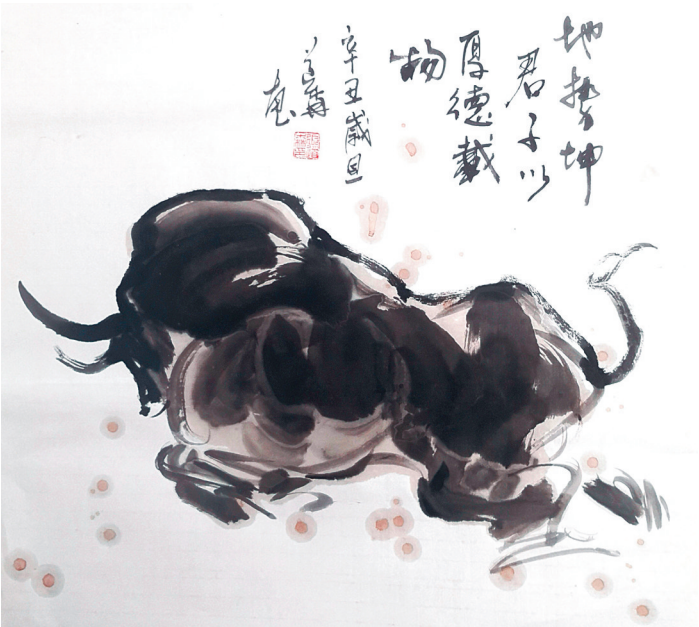 地勢坤
君子以
厚德載
物
辛丑歲旦
画